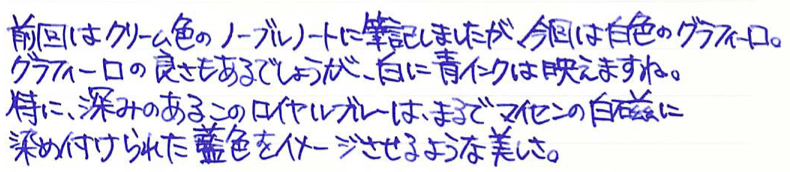 前回はクリーム色のノーブルノートに筆記しましたが、今回は白色のグラフィーロ。
グラフィーロの良さもあるでしょうが、白に青インクは映えますね。
特に、深みのあるこのロイヤルブルーは、まるでマイセンの白磁に
染め付けられた藍色をイメージさせるような美しさ。